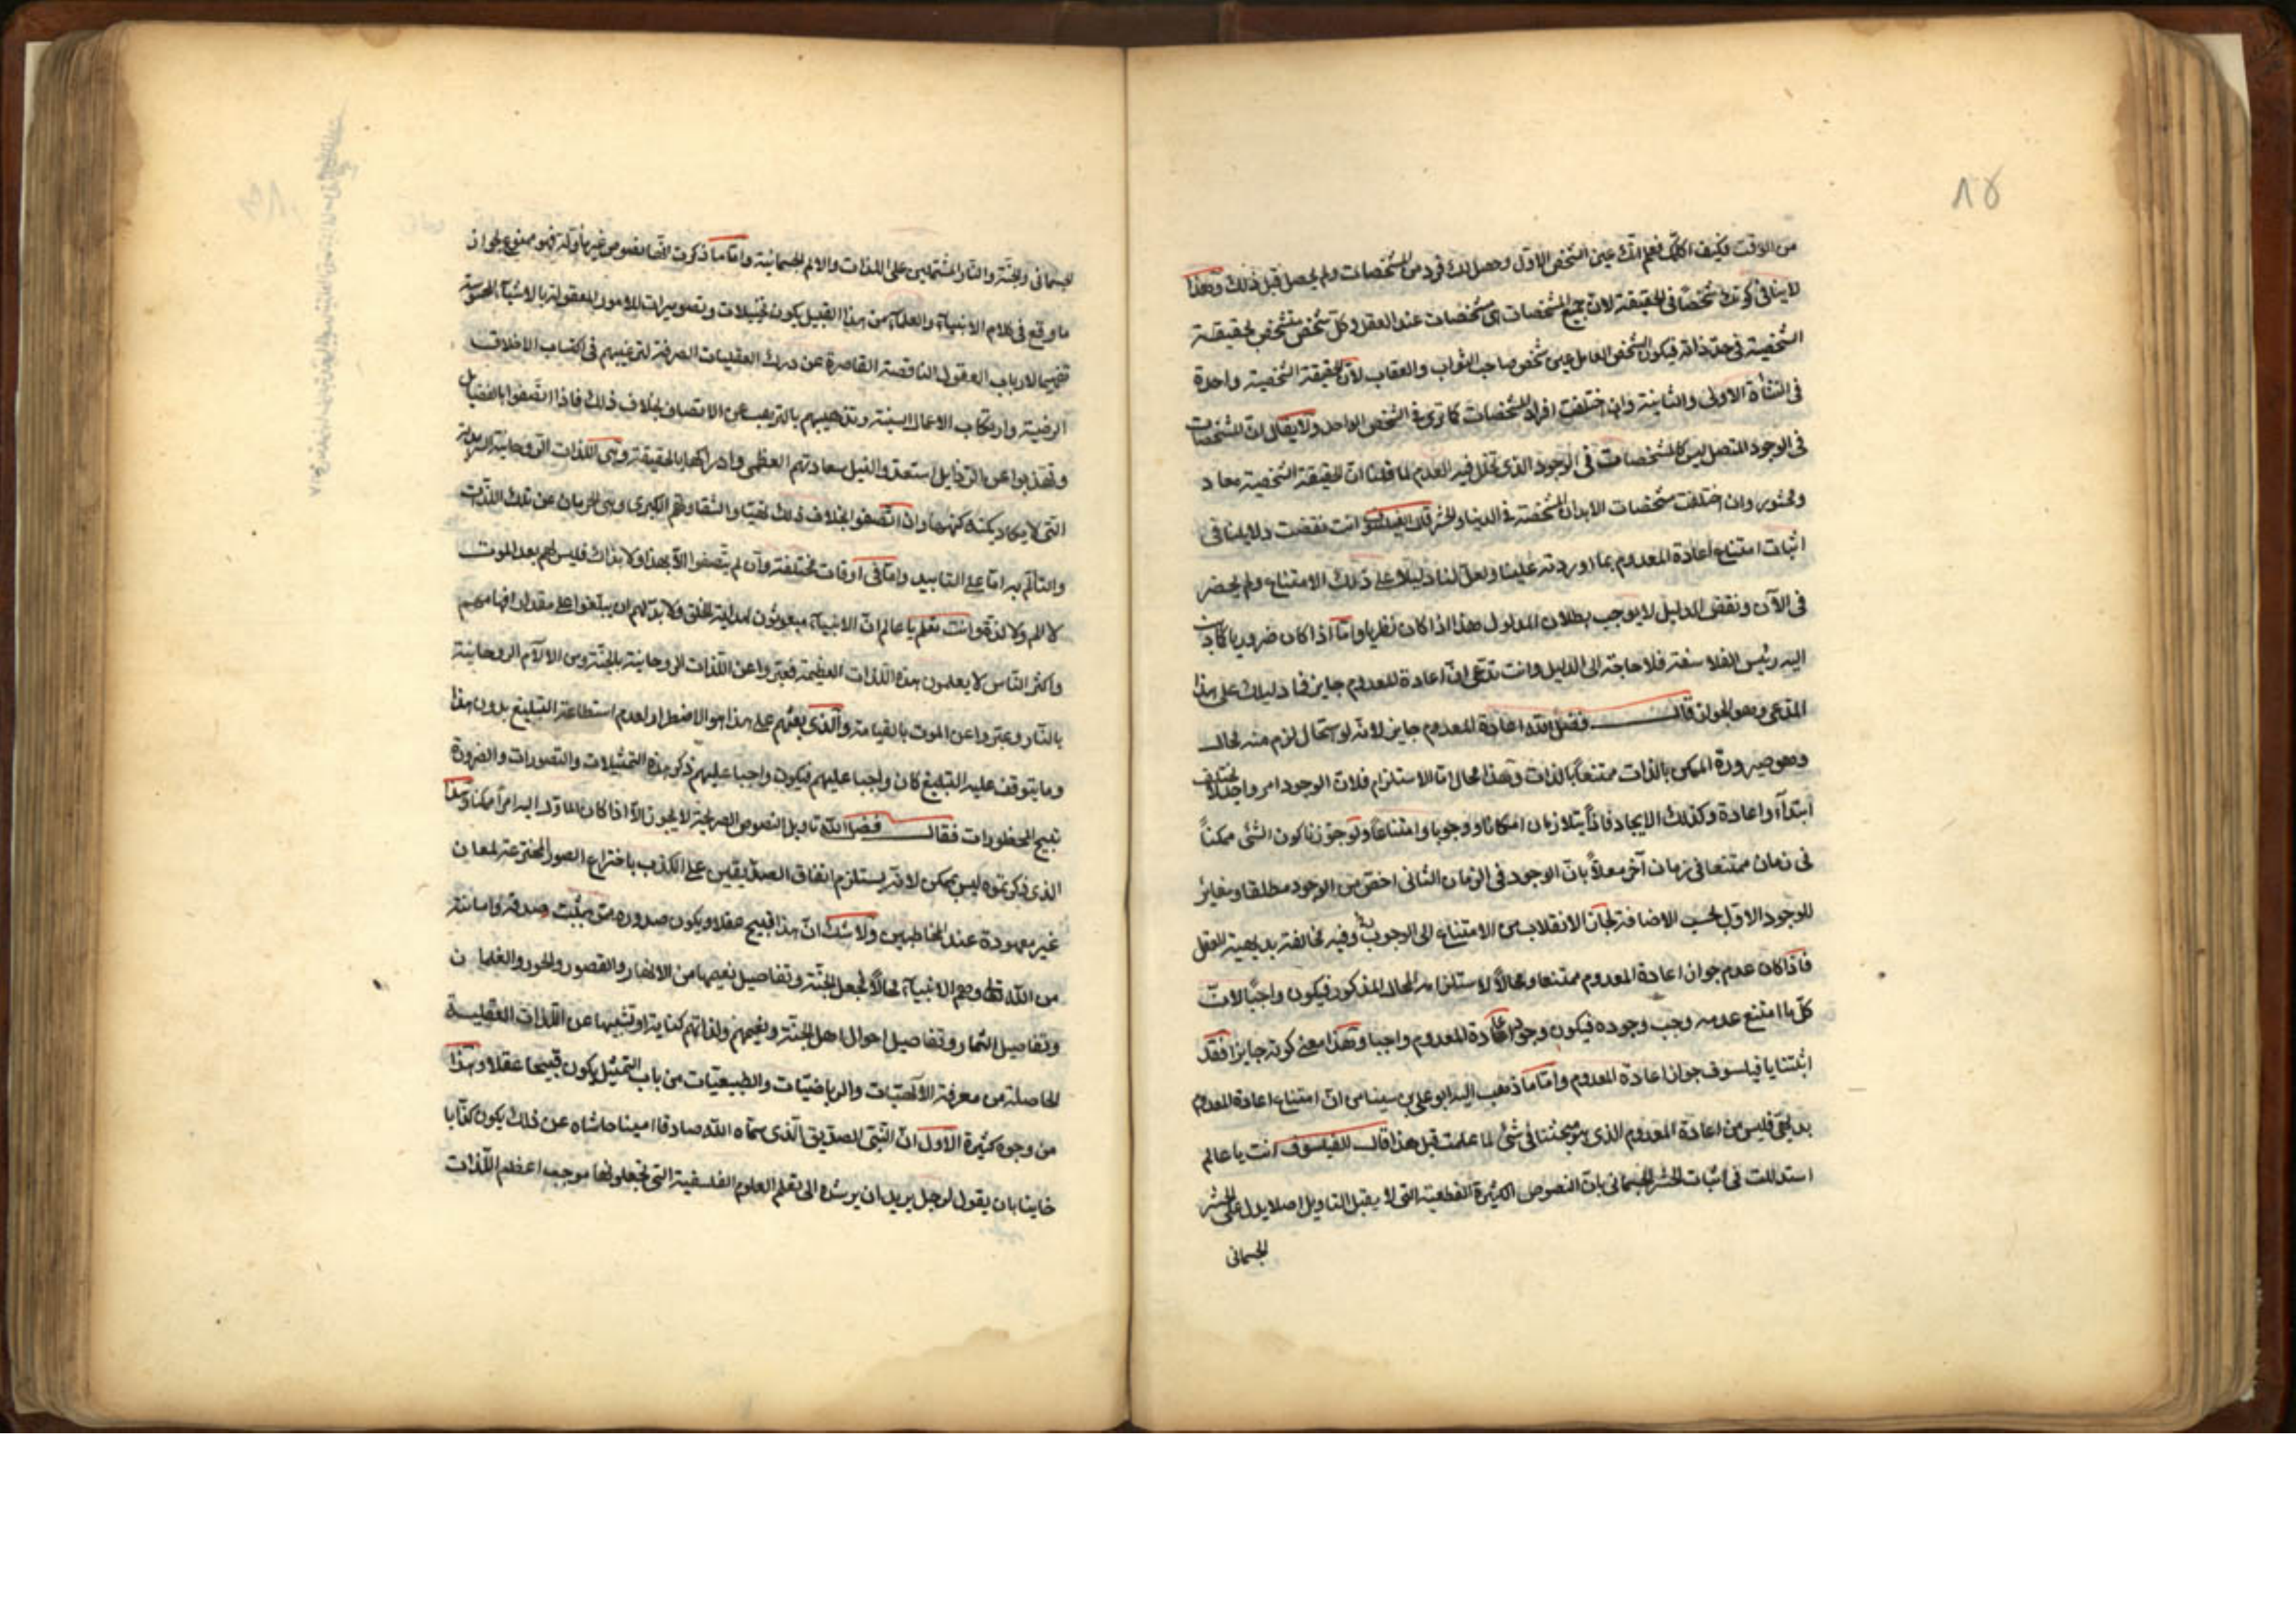 ٨٥
من الوقت فكيف اكلمك فعلم انك عين الشخص الاول وحصل لك فرد من المشخصات ولم يحصل قبل ذلك وهذا
لا ينافى كونك شخصا فى الحقيقة لان جميع المشخصات اى مشخصات عند العقل وكل شخص متشخص بحقيقة
الشخصية فى حد ذاته فيكون الشخص العامل عين شخص صاحب الثواب والعقاب لان الحقيقة الشخصية واحدة
فى النشأة الاولى والثانية وان اختلفت افراد المشخصات كما ترى فى الشخص الواحد ولا يقال ان المشخصات
فى الوجود المتصل ليس كالمشخصات فى الوجود الذى تخلل فيه العدم لما قلنا ان الحقيقة الشخصية معاد
ومحشور وان اختلفت مشخصات الابدان الشخصة فى الدنيا والحشر قال الفيلسوف انت نقضت دلايلنا فى
اثبات امتناع اعادة المعدوم بما اوردته علينا ولعل لنا دليلا على ذلك الامتناع ولم يحضر
فى الآن ونقض الدليل لا يوجب بطلان المدلول هذا اذا كان نظريا واما اذا كان ضروريا كما ذهب
اليه رئيس الفلاسفة فلا حاجة الى الدليل وانت تدعى ان اعادة المعدوم جايز فما دليلك على هذا
المدعى وهو الجواز قال فضل الله اعادة المعدوم جايز لانه لو استحال لزم منه محال
وهو صيرورة الممكن بالذات ممتنعا بالذات وهذا محال اما الاستلزام فلان الوجود امر واحد لا يختلف
ابتدآء واعادة وكذلك الايجاد فاذا يتلازمان امكانا ووجوبا وامتناعا ولو جوزنا كون الشئ ممكنا
فى زمان ممتنعا فى زمان آخر معللا بان الوجود فى الزمان الثانى اخص من الوجود مطلقا ومغاير
للوجود الاول بحسب الاضافة لجاز الانقلاب من الامتناع الى الوجوب وفيه مخالفة بديهية العقل
فاذا كان عدم جواز اعادة المعدوم ممتنعا ومحالا لاستلزامه المحال المذكور فيكون واجبا لان
كل ما امتنع عدمه وجب وجوده فيكون وجود اعادة المعدوم واجبا وهذا معنى كونه جايزا فقد
اثبتنا يا فيلسوف جواز اعادة المعدوم واما ما ذهب اليه ابو على بن سينا من ان امتناع اعادة المعدوم
بديهى فليس من اعادة المعدوم الذى هو مبحثنا فى شئ لما علمت قبل هذا قال الفيلسوف انت يا عالم
استدللت فى اثبات الحشر الجسمانى بان النصوص الكثيرة القطعية التى لا يقبل التاويل اصلا يدل على الحشر
الجسمانى
الجسمانى والجنة والنار المشتملين على اللذات والالم الجسمانية واما ما ذكرت انها نصوص غير مأولة فهو ممنوع لجواز
ما وقع فى كلام الانبيآء والعلمآء من هذا القبيل يكون تخييلات وتصويرات للامور المعقولة بالاشيآء المحسوسة
تفهيما لارباب العقول الناقصة القاصرة عن درك العقليات الصرفة لترغيبهم فى اكتساب الاخلاق
الرضية وارتكاب الاعمال السنية وتذهيبهم بالترهيب عن الاتصاف بخلاف ذلك فاذا اتصفوا بالفضايل
وتهذبوا عن الرذايل استعدوا لنيل سعادتهم العظمى وادراكها بالحقيقة وهى اللذات الروحانية الابدية
التى لا يكاد يكتنه كنهها وان اتصفوا بخلاف ذلك تهيئوا لشقاوتهم الكبرى وهى الحرمان عن تلك اللذات
والتألم به اما على التابيد واما فى اوقات مختلفة وان لم يتصفوا الا بهذا ولا بذاك فليس لهم بعد الموت
لا الم ولا لذة وانت تعلم يا عالم ان الانبيآء مبعوثون لهداية الخلق ولا بد لهم ان يبلغوا على مقدار افهامهم
واكثر الناس لا يعلمون هذه اللذات العظيمة فعبروا عن اللذات الروحانية بالجنة وعن الآلام الروحانية
بالنار وعبروا عن الموت بالقيامة والذى بعثهم على هذا هو الاضطرار لعدم استطاعة التبليغ بدون هذا
وما يتوقف عليه التبليغ كان واجبا عليهم فيكون واجبا عليهم ذكر هذه التمثيلات والتصورات والضرورة
تبيح المحظورات فقال فضل الله تاويل النصوص الصريحة لا يجوز الا اذا كان الماوّل اليه امرا ممكنا وهذا
الذى ذكرتموه ليس بممكن لانه يستلزم اتفاق الصديقين على الكذب باختراع الصور المخترعة لمعان
غير معهودة عند المخاطبين ولا شك ان هذا قبيح عقلا ويكون صدوره ممن يثبت صدقه وامانته
من الله تعالى وهم الانبيآء محالا فجعل الجنة وتفاصيل نعيمها من الانهار والقصور والحور والغلمان
وتفاصيل الثمار وتفاصيل احوال اهل الجنة ونعيمهم ولذاتهم كناية او تشبيها عن اللذات العقلية
الحاصلة من معرفة الالهيات والرياضيات والطبيعيات من باب التمثيل يكون قبيحا عقلا وهذا
من وجوه كثيرة الاول ان النبى الصديق الذى سماه الله صادقا امينا حاشاه عن ذلك يكون كذابا
خاينا بان يقول لرجل يريد ان يرشده الى تعلم العلوم الفلسفية التى تجعلونها موجبة اعظم اللذات